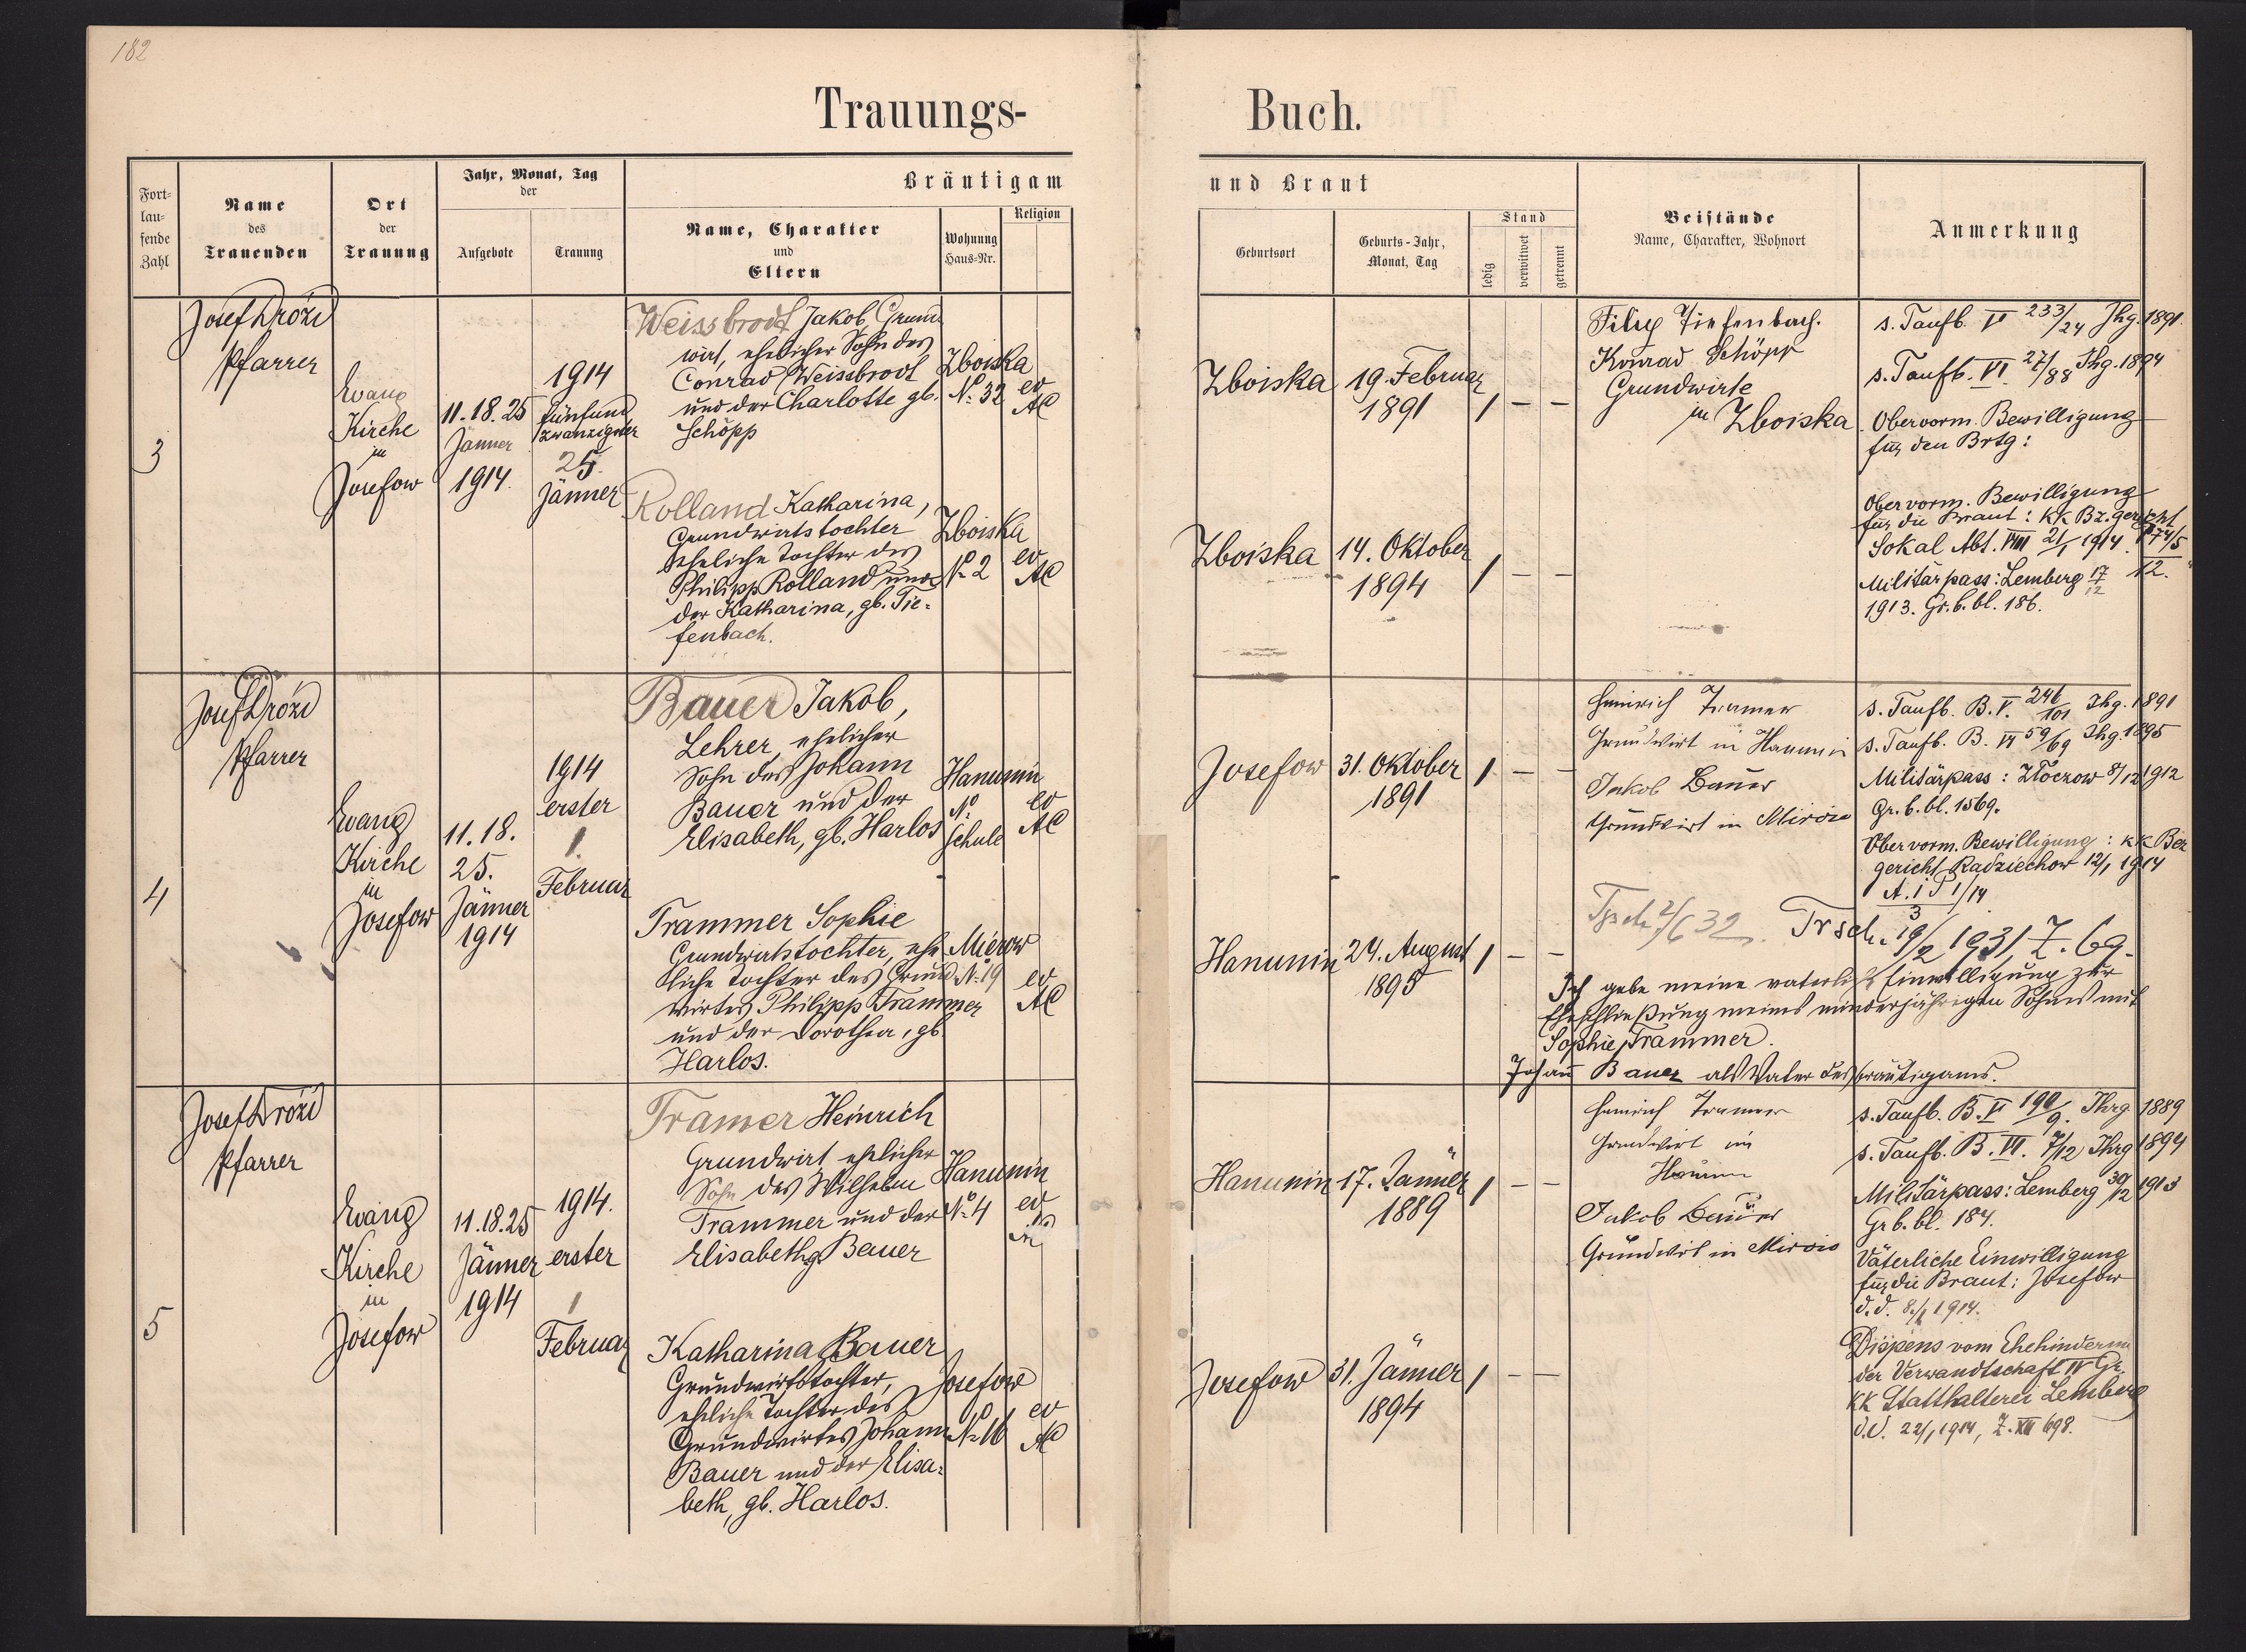 182
Trauungs-
Buch.
Fort-
lau-
fende
Zahl
Name
des
Trauenden
Ort
der
Trauung
Jahr, Monat, Tag
der
Aufgebote
Trauung
Bräutigam
Name, Charakter
und
Eltern
Wohnung
Haus-Nr.
Religion
und Braut
Geburtsort
Geburts-Jahr,
Monat, Tag
Stand
ledig
verwitwet
getrennt
Beistände
Name, Charakter, Wohnort
Anmerkung
3
Josef Drózd
Pfarrer
Evang
Kirche
in
Josefow
11. 18. 25
Jänner
1914.
1914
fünfund
zwanzigster
25.
Jänner
Weissbrodt Jakob, Grund
wirt, ehelicher Sohn des
Conrad Weissbrodt
und der Charlotte gb.
Schöpp
Zboiska
No. 32
ev
AC
Rolland Katharina,
Grundwirtstochter
eheliche Tochter des
Philipp Rolland und
der Katharina, gb. Tie-
fenbach.
Zboiska
No 2
ev
AC
Zboiska
19. Februar
1891
1 – –
Zboiska
14. Oktober
1894
1 – –
Filip Tiefenbach.
Konrad Schöpp
Grundwirte
in Zboiska
s. Taufb. V 233/24 Jhg. 1891
s. Taufb. VI. 27/88 Jhg. 1894
Obervorm. Bewilligung
für den Brtg:
Obervorm. Bewilligung
für die Braut: KK Bz. gericht
Sokal Abt. VIII 21/1 1914. P 74/5
12.
Militärpass: Lemberg 17/12
1913. Gr. b. bl. 186.
4
Josef Drózd
Pfarrer
Evang
Kirche
in
Josefow
11. 18.
25.
Jänner
1914
1914
erster
1.
Februar
Bauer Jakob,
Lehrer, ehelicher
Sohn des Johann
Bauer und der
Elisabeth, gb. Harlos
Hanunin
No
Schule
ev
AC
Trammer Sophie
Grundwirtstochter, ehe
liche Tochter des Grund
wirtes Philipp Trammer
und der Dorothea, gb.
Harlos.
Mierow
No. 19
ev
AC
Josefow
31. Oktober
1891
1 – –
Hanunin
24. August
1895
1 – –
Heinrich Tramer
Grundwirt in Hanunin
Jakob Bauer
Grundwirt in
s. Taufb. B. V. 246/101 Jhg. 1891
s. Taufb. B. VI 59/69 Jhg. 1895
Militärpass: Złoczow 8/12 1912
Gr. b. bl. 1569.
Obervorm. Bewilligung: KK Bez
gericht Radziechow 12/1 1914
A. I P 1/14
3
Trsch. 2/6 32.
Trsch. 19/2 1931 Z. 69.
Ich gebe meine väterliche Einwilligung zur
Eheschließung meines minderjährigen Sohnes mit
Sophie Trammer.
Johann Bauer als Vater des Bräutigams.
5
Josef Drózd
Pfarrer
Evang
Kirche
in
Josefow
11. 18. 25
Jänner
1914
1914.
erster
1
Februar
Tramer Heinrich
Grundwirt ehelicher
Sohn des Wilhelm
Trammer und der
Elisabeth g. Bauer
Hanunin
No. 4
ev
AC
Katharina Bauer
Grundwirtstochter,
eheliche Tochter des
Grundwirtes Johann
Bauer und der Elisa-
beth, gb. Harlos.
Josefow
No 16
ev
AC
Hanunin
17. Jänner
1889
1 – –
Josefow
31. Jänner
1894
1 – –
Heinrich Tramer
Grundwirt in
Jakob Bauer
Grundwirt in
s. Taufb. B. V 190/9. Jhrg 1889
s. Taufb. B. VI. 7/12 Jhrg 1894
Militärpass: Lemberg 30/12 1913
Gr b. bl. 184.
Väterliche Einwilligung
für die Braut: Josefow
d. d. 8./1 1914.
Dispens vom Ehehinderni
der Verwandtschaft IV Gr.
KK Statthalterei Lemberg
d. d. 22/1 1914, Z. XII 698.